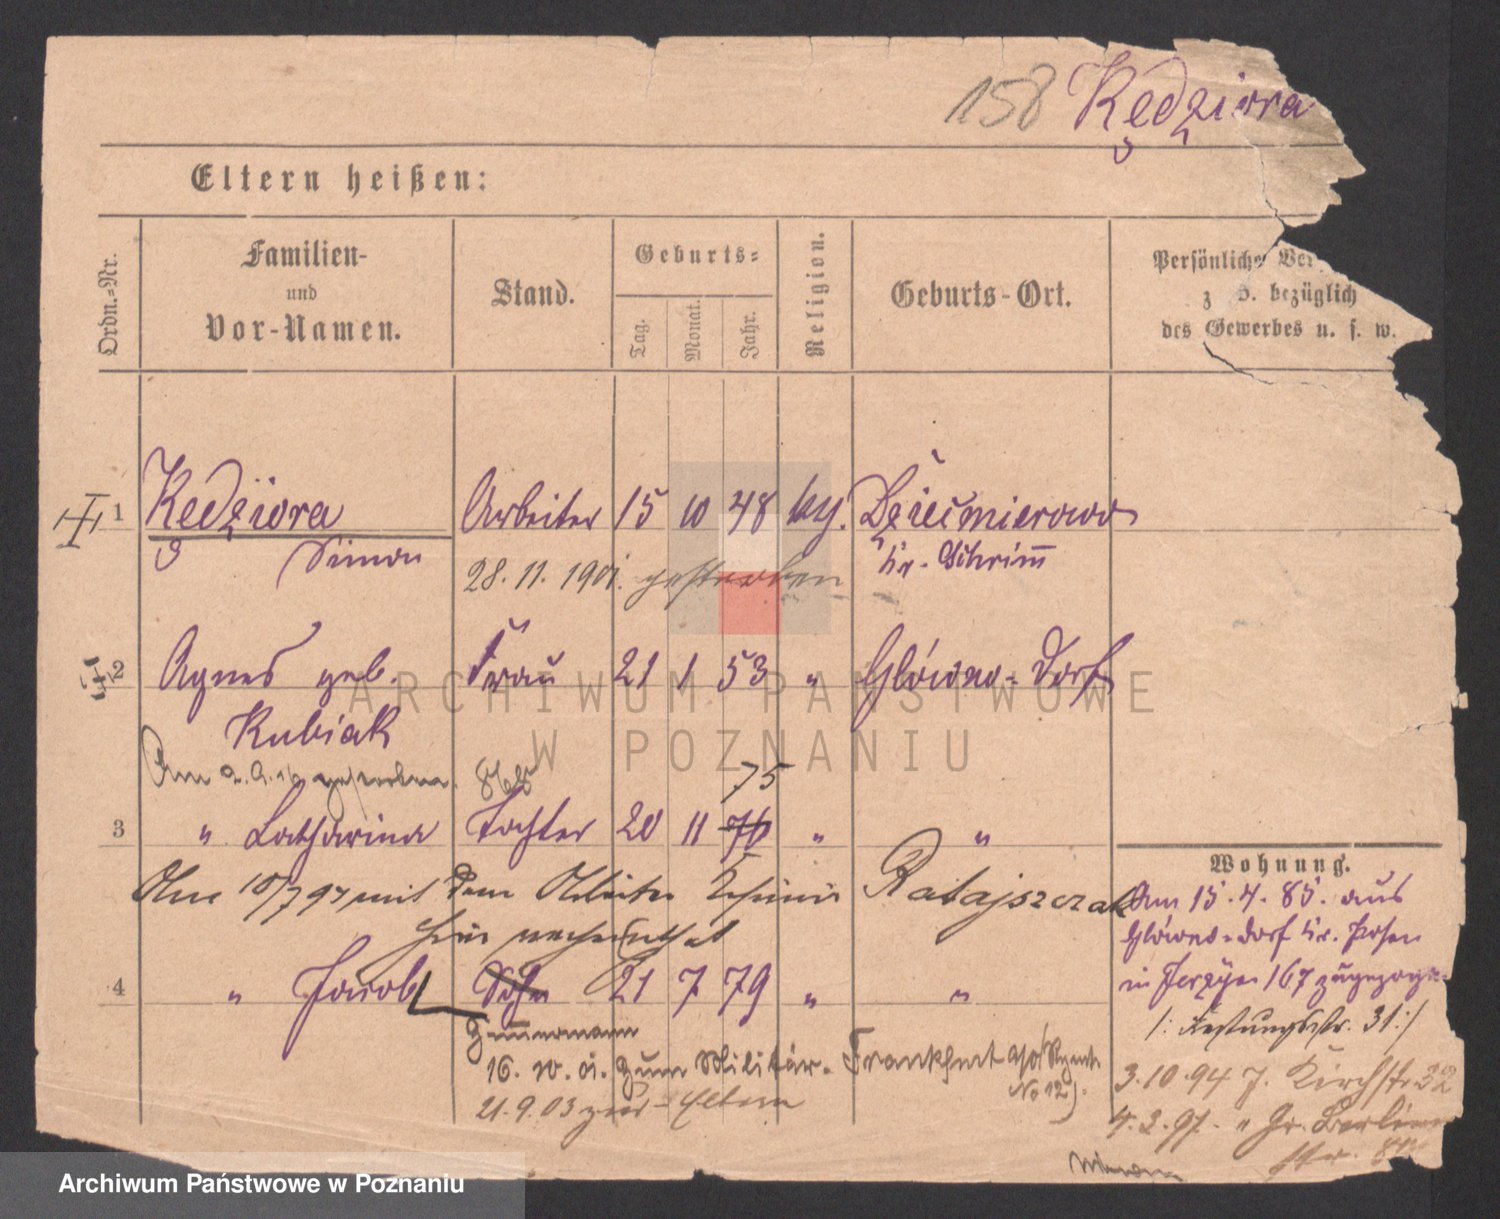 158 Kędziora
Eltern heißen:
Ordn.=Nr.
Familien-
und
Vor-Namen.
Stand.
Geburts=
Tag.
Monat.
Jahr.
Religion.
Geburts-Ort.
Persönliche
z B. bezüglich
des Gewerbes u. s. w.
1 Kędziora Arbeiter 15 10 48 kth. Dziećmierowo
Simon Kr. Schrimm
28.11.1901. gestorben
2 Agnes geb. Frau 21 1 53 " Glówno-Dorf
Kubiak
Am gestorben.
75
3 " Catharina Tochter 20 11 76 " "
10/7 97 mit dem Arbeiter Ratajszczak
4 " Jacob Sohn 21 7 79 " "
Zimmermann
16.10.01. zum Militär. Frankfurt a/O
No 12).
21.9.03 zur Eltern
Wohnung.
Am 15.4.85. aus
Glówno-dorf Kr. Posen
in Jerzyce 167 zugezogen
/: Festungsstr. 31 :/
3.10.94 J. Kirchstr 32
4.2.97. " Gr. Berliner
str.
ARCHIWUM PAŃSTWOWE
W POZNANIU
Archiwum Państwowe w Poznaniu